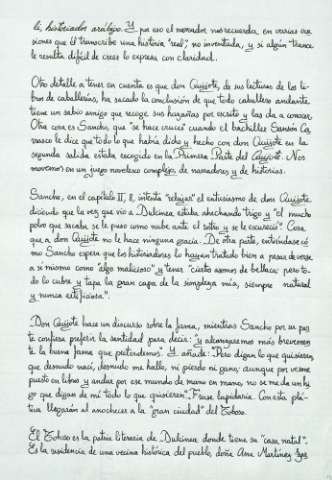 le, historiador arábigo. Y por eso el narrador nos recuerda, en varias oca-
siones que él transcribe una historia "real", no inventada, y si algún trance
le resulta difícil de creer lo expresa con claridad.
Otro detalle a tener en cuenta es que don Quijote, de sus lecturas de los li-
bros de caballerías, ha sacado la conclusión de que todo caballero andante
tiene un sabio amigo que recoge sus hazañas por escrito y las da a conocer.
Otra cosa es Sancho, que "se hace cruces" cuando el bachiller Sansón Ca-
rrasco le dice que todo lo que había dicho y hecho con don Quijote en la
segunda salida estaba recogido en la Primera Parte del Quijote. Nos
movemos en un juego novelesco complejo, de narradores y de historias.
Sancho, en el capítulo II, 8, intenta "rebajar" el entusiasmo de don Quijote
diciendo que la vez que vio a Dulcinea estaba ahechando trigo y "el mucho
polvo que sacaba, se le puso como nube ante el rostro y se le escureció". Cosa
que a don Quijote no le hace ninguna gracia. De otra parte, entiéndase có-
mo Sancho espera que los historiadores lo hayan tratado bien a pesar de verse
a sí mismo como "algo malicioso" y tener "cierto asomo de bellaco; pero to-
do lo cubre y tapa la gran capa de la simpleza mía, siempre natural
y nunca artificiosa".
Don Quijote hace un discurso sobre la fama, mientras Sancho por su par-
te confiesa preferir la santidad para decir: "y alcanzaremos más brevemen-
te la buena fama que pretendemos". Y añade: "Pero digan lo que quisieren,
que desnudo nací, desnudo me hallo, ni pierdo ni gano; aunque por verme
puesto en libros y andar por ese mundo de mano en mano, no se me da un hi-
go que digan de mí todo lo que quisieren". Frase lapidaria. Con esta plá-
tica llegarán al anochecer a la "gran ciudad" del Toboso.
El Toboso es la patria literaria de Dulcinea donde tiene su "casa natal".
Es la residencia de una vecina histórica del pueblo, doña Ana Martínez